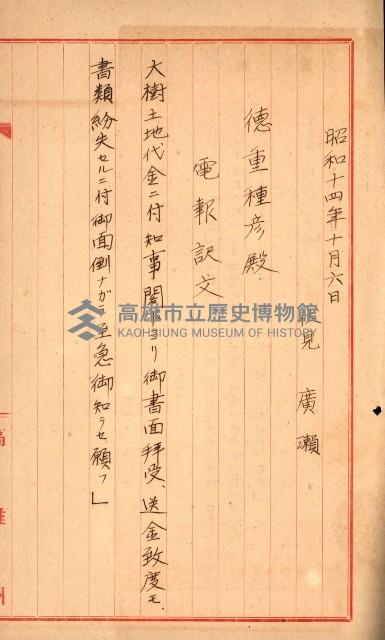 昭和十四年十月六日
逸見 廣瀨
德重種彥殿
電報訳文
大樹土地代金ニ付知事閣下ヨリ御書面拝受、送金致度モ、
書類紛失セルニ付御面倒ナガラ至急御知ラセ願フ」
高雄州
高雄市立歷史博物館
KAOHSIUNG MUSEUM OF HISTORY